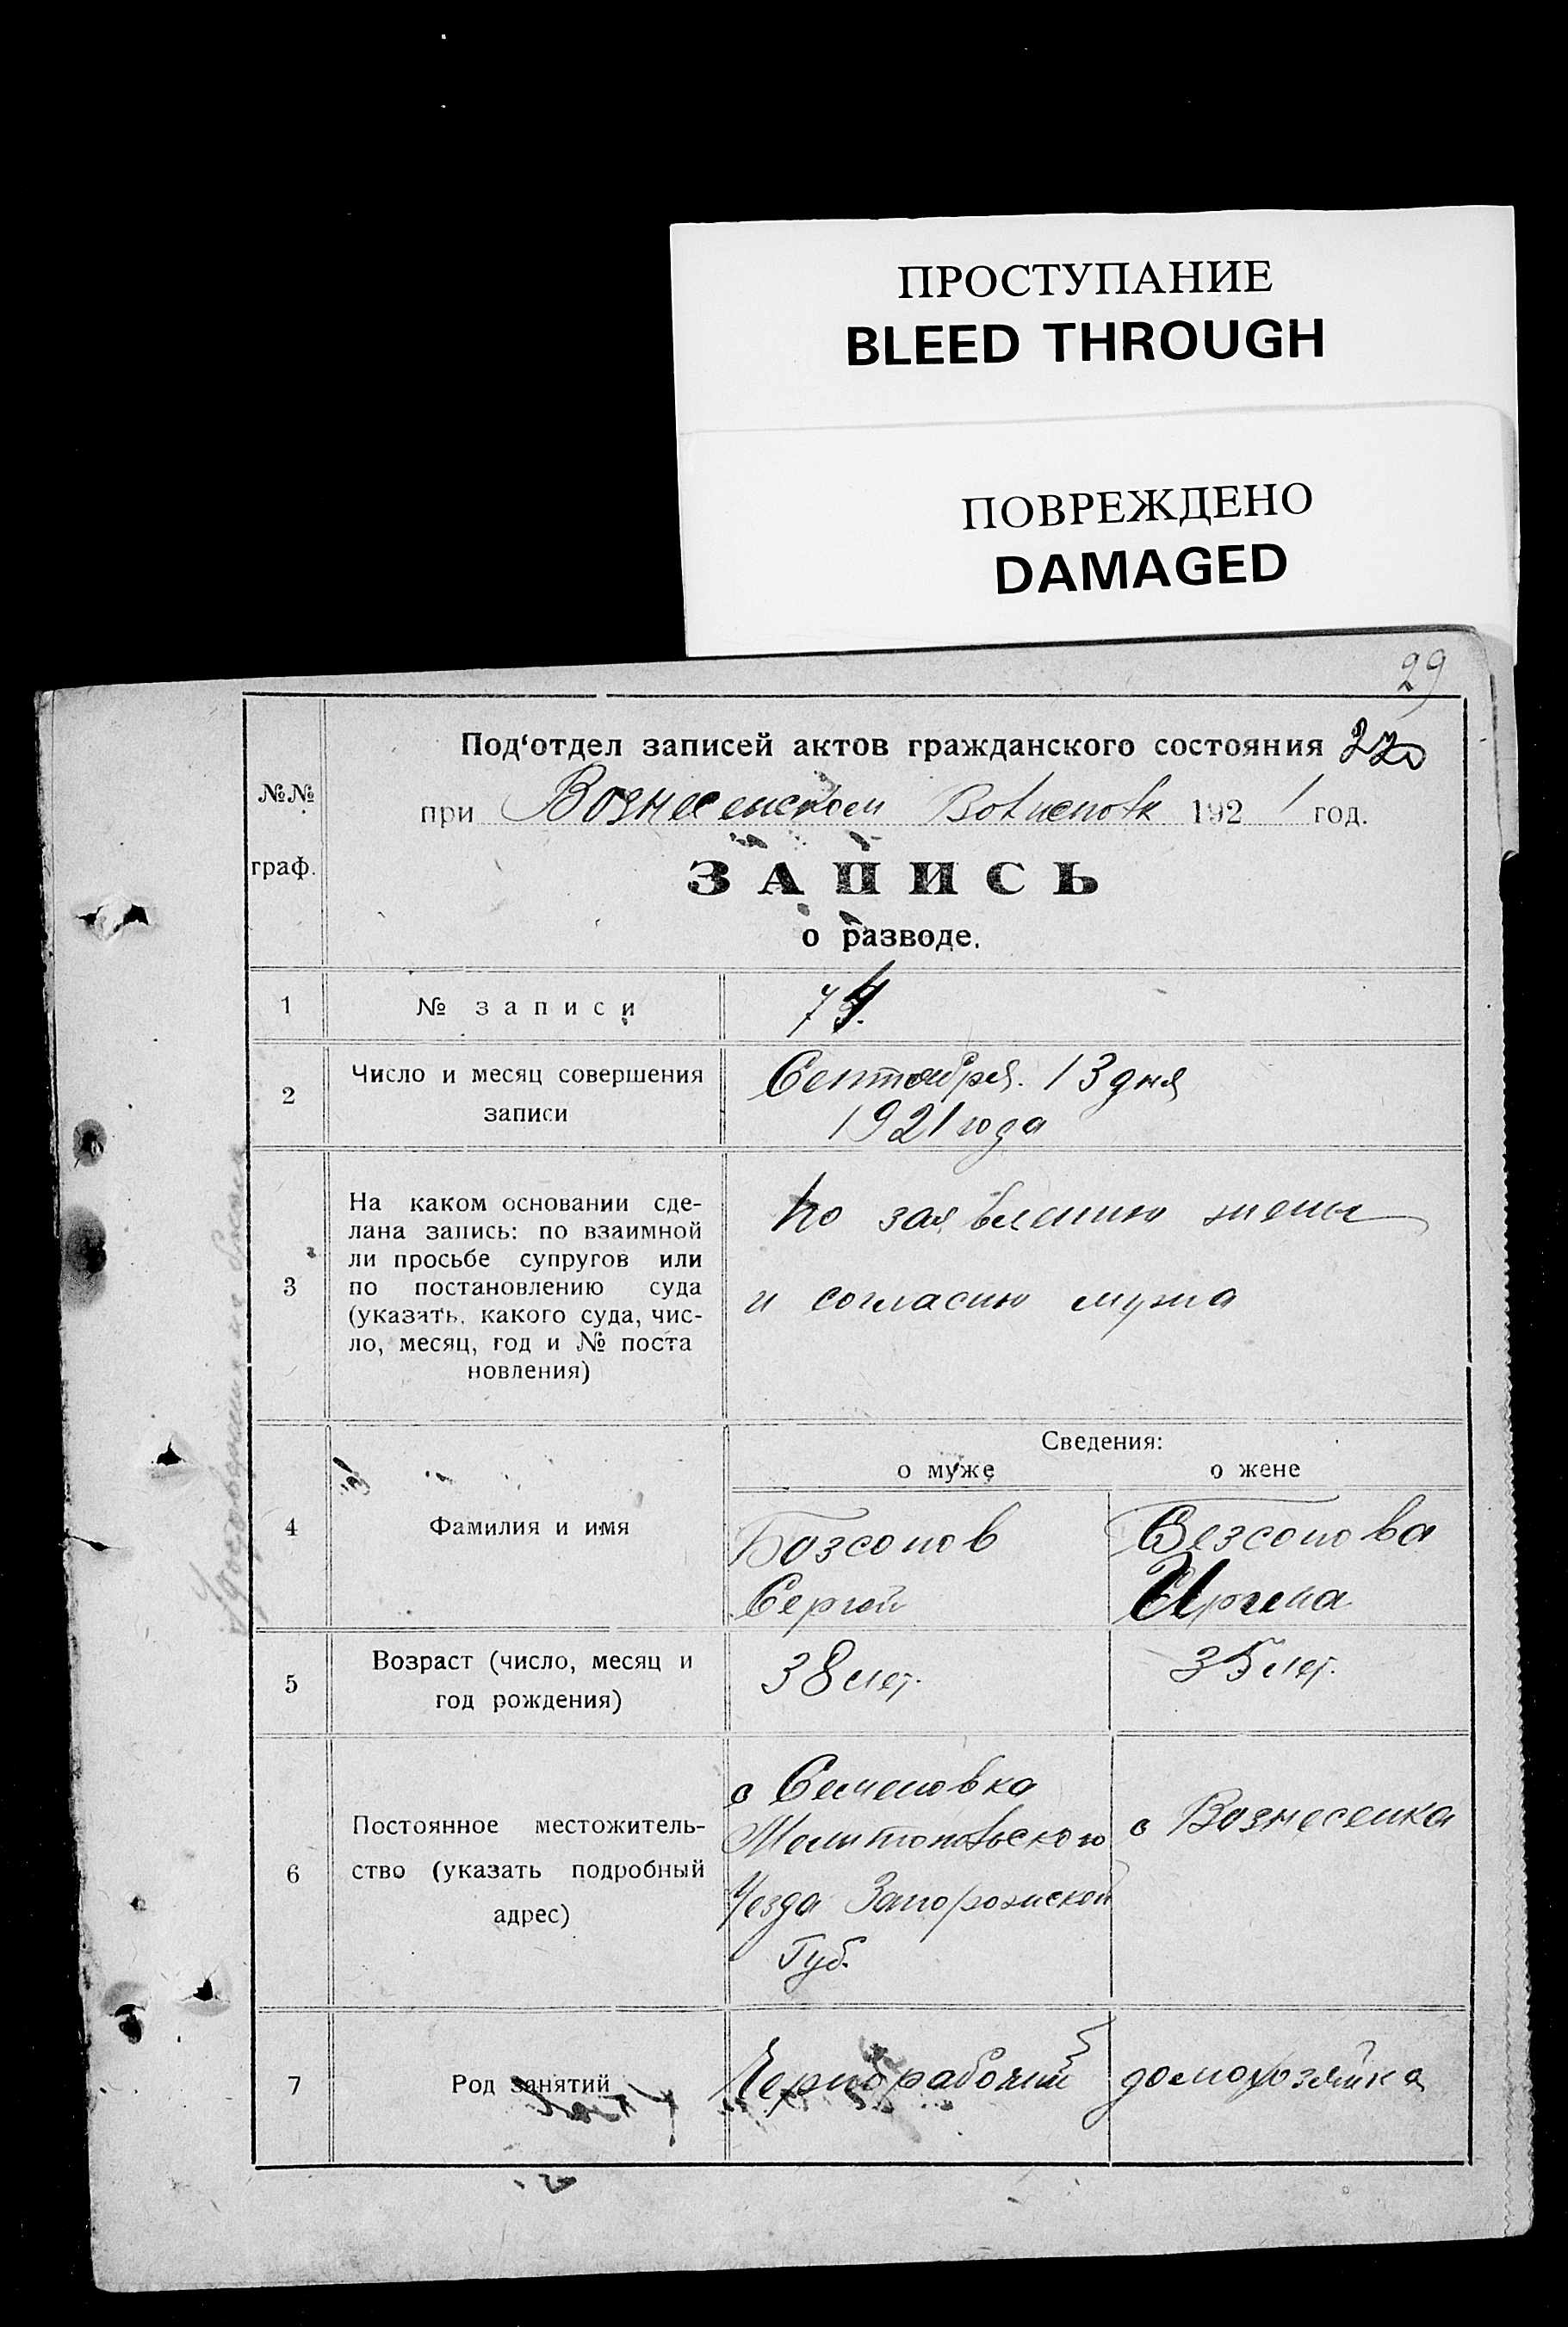 ПРОСТУПАНИЕ
BLEED THROUGH
ПОВРЕЖДЕНО
DAMAGED
29
Под‘отдел записей актов гражданского состояния
при Вознесенском Волисполк 1921 год.
№№
граф.
ЗАПИСЬ
о разводе.
1 № записи 74.
2 Число и месяц совершения
записи
Сентября. 13 дня
1921 года
3 На каком основании сде-
лана запись: по взаимной
ли просьбе супругов или
по постановлению суда
(указать, какого суда, чис-
ло, месяц, год и № поста
новления)
по заявлению жены
и согласию мужа
Сведения:
о муже о жене
4 Фамилия и имя
Безсонов
Сергей
Безсонова
Ирина
5 Возраст (число, месяц и
год рождения)
38 лет.
35 лет.
6 Постоянное местожитель-
ство (указать подробный
адрес)
с Семеновка
Мелитопольского
Уезда Запорожской
Губ.
с Вознесенка
7 Род занятий
Чернорабочий
домохозяйка